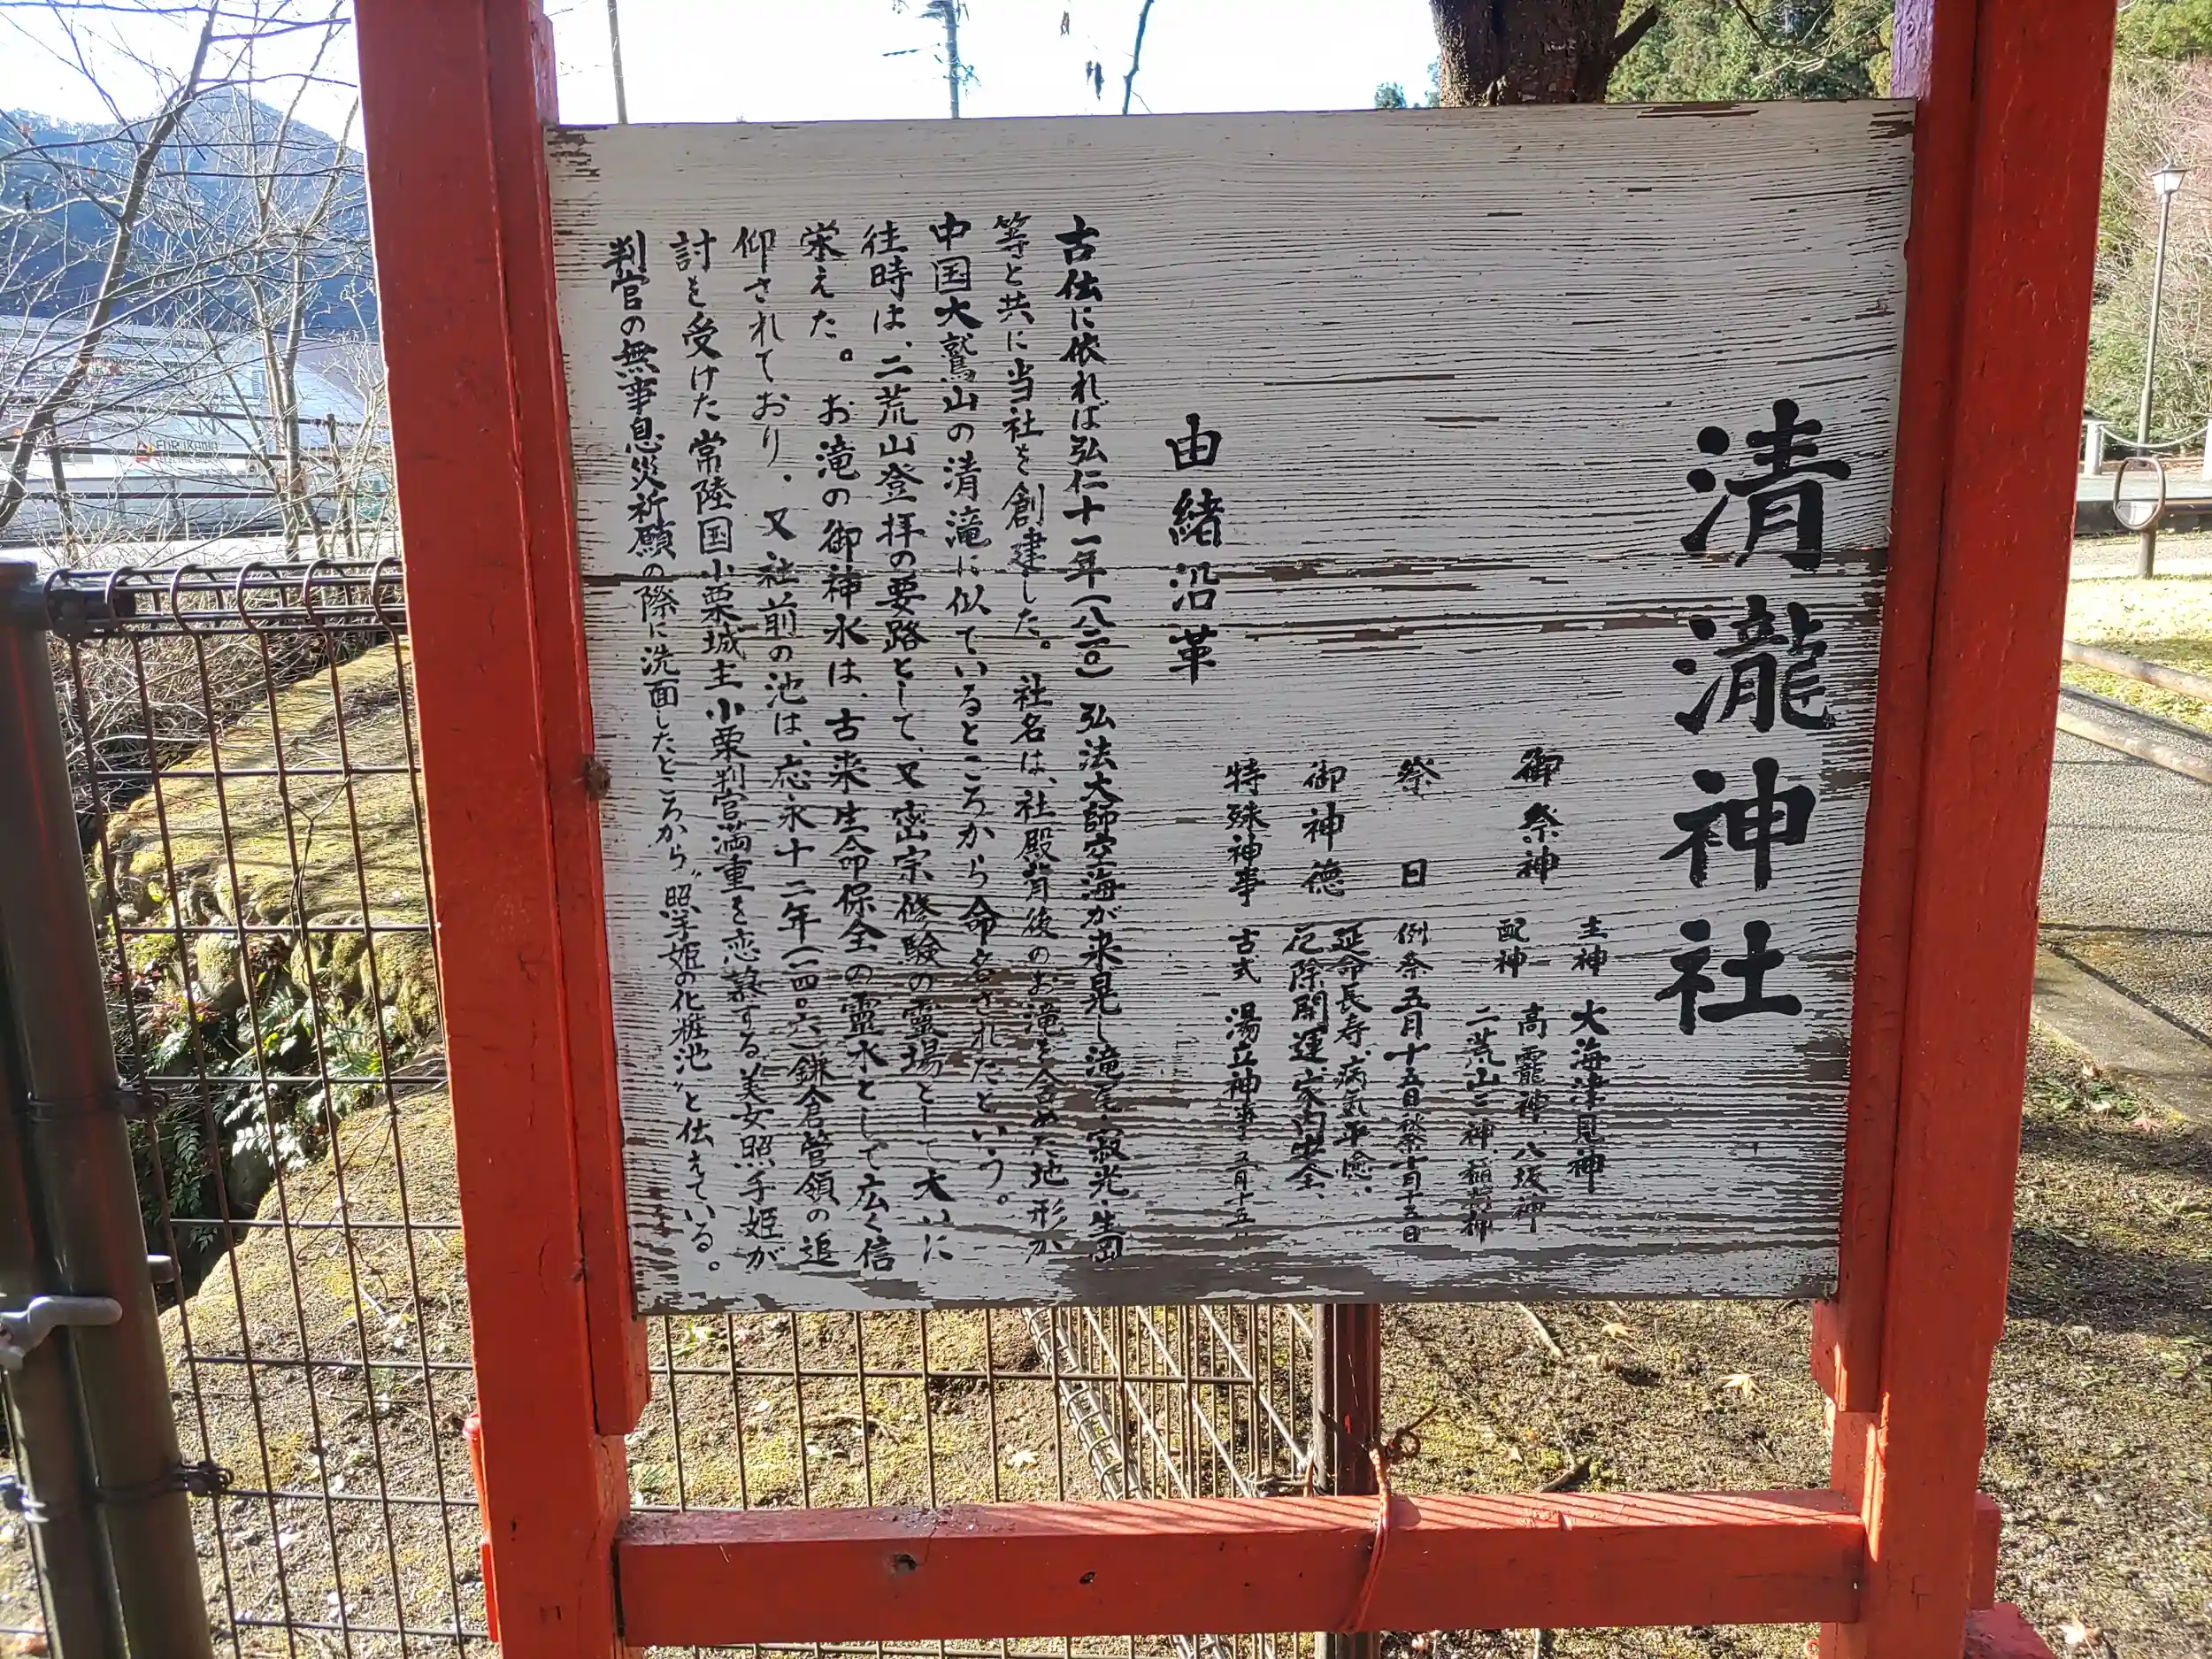 清瀧神社
御祭神 主神 大海津見神
配神 高龗神、八坂神
二荒山三神、稲荷神
祭日 例祭五月十五日 秋祭十月十五日
御神徳 延命長寿、病気平癒、
厄除開運、家内安全、
特殊神事 古式 湯立神事 五月十五
由緒沿革
古伝に依れば弘仁十一年(八二〇)弘法大師空海が来晃し滝尾、寂光、生岡
等と共に当社を創建した。社名は、社殿背後のお滝を含めた地形が
中国大鷲山の清滝に似ているところから命名されたという。
往時は、二荒山登拝の要路として、又密宗修験の霊場として大いに
栄えた。お滝の御神水は、古来生命保全の霊水として広く信
仰されており、又社前の池は、応永十二年(一四〇六)鎌倉管領の追
討を受けた常陸国小栗城主小栗判官満重を恋慕する美女照手姫が
判官の無事息災祈願の際に洗面したところから〝照手姫の化粧池〟と伝えている。
FURUKAWA